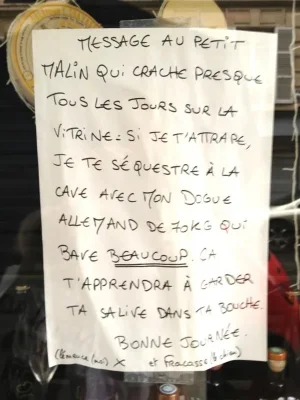 MESSAGE AU PETIT
MALIN QUI CRACHE PRESQUE
TOUS LES JOURS SUR LA
VITRINE : SI JE T'ATTRAPE,
JE TE SÉQUESTRE À LA
CAVE AVEC MON DOGUE
ALLEMAND DE 70KG QUI
BAVE BEAUCOUP. ÇA
T'APPRENDRA À GARDER
TA SALIVE DANS TA BOUCHE.
BONNE JOURNÉE.
(Clémence (moi) X et Fracasse (le chien)